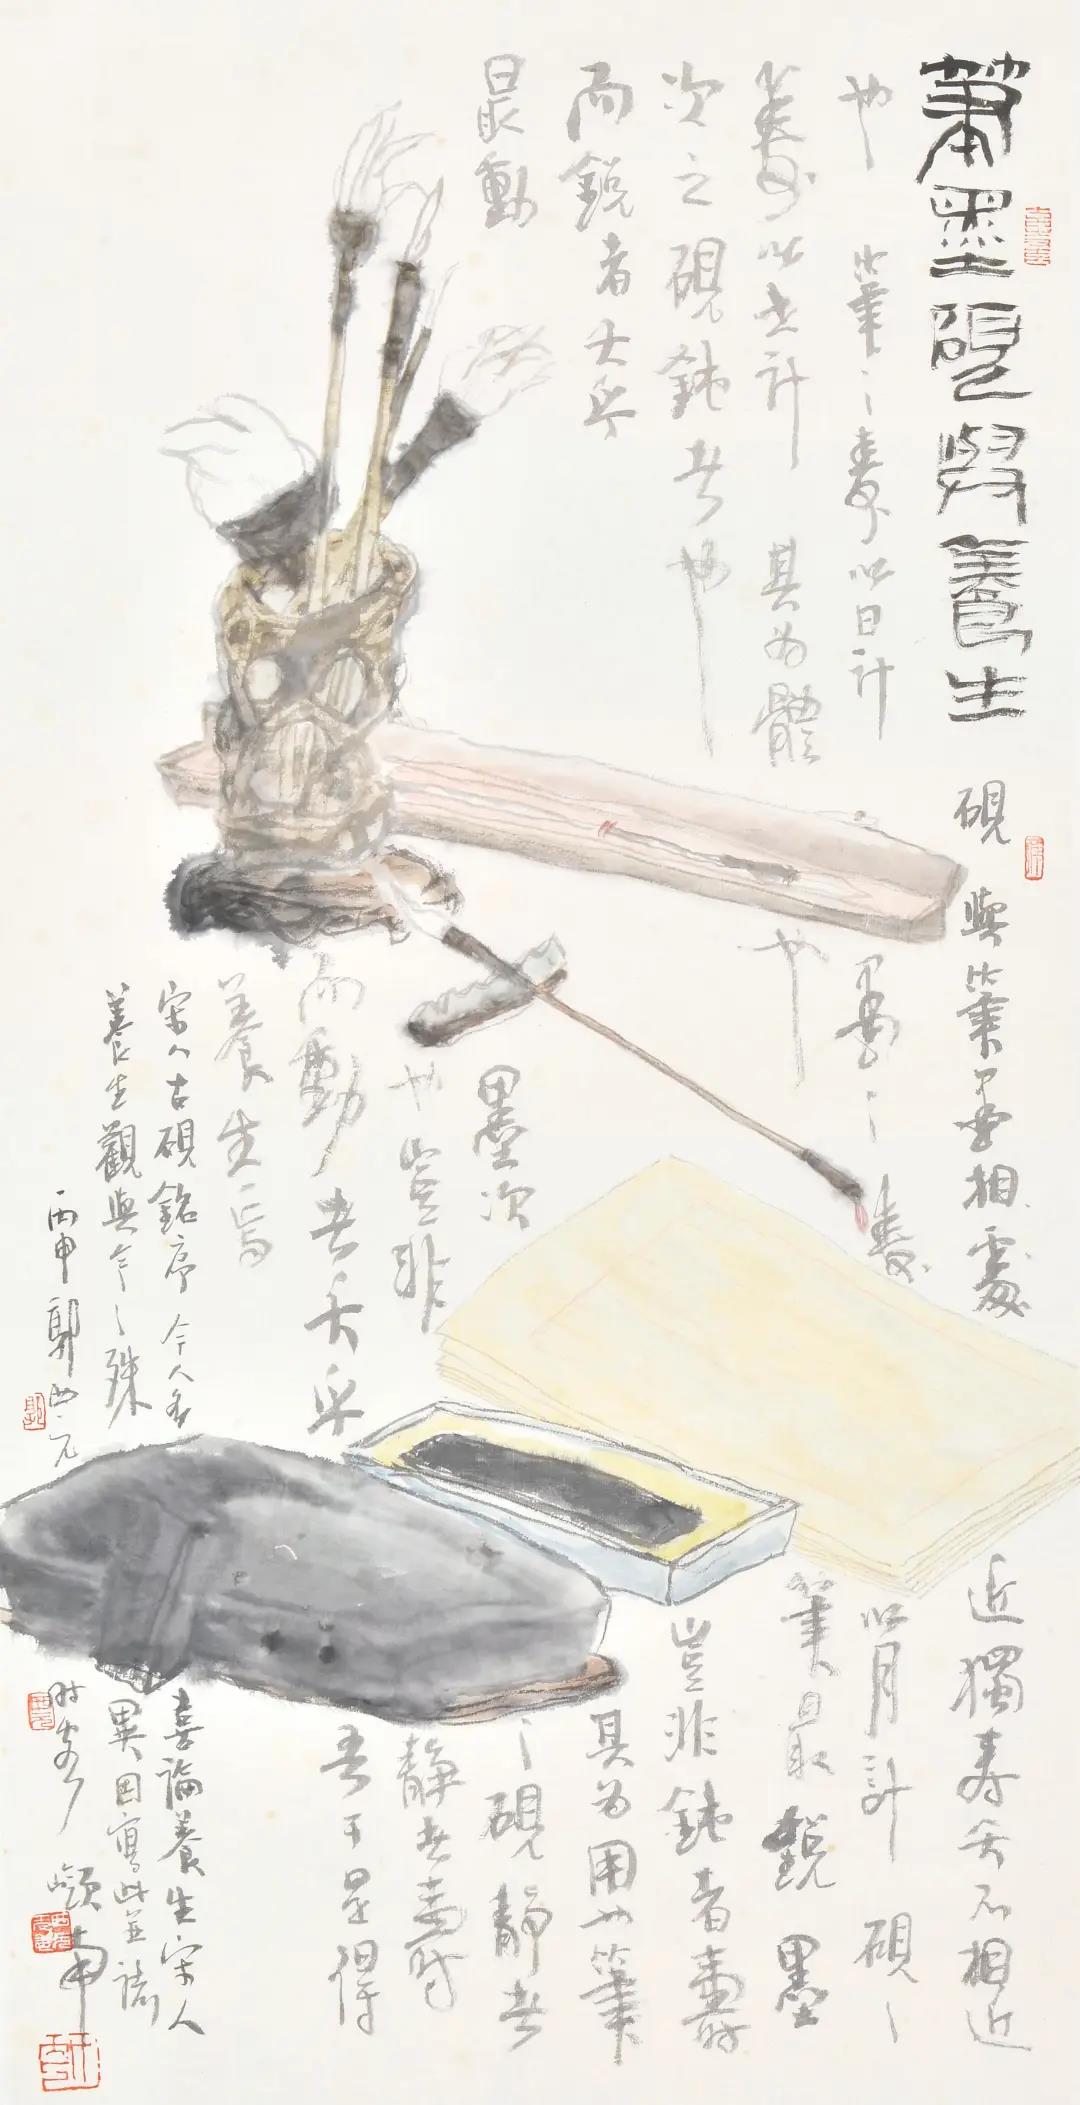 筆墨硯與養生
硯與筆墨相處近獨壽夭不相近
也筆之壽以日計墨之壽以月計硯之
壽以世計其為體也筆最銳墨
次之硯鈍者也豈非鈍者壽
而銳者夭乎其為用也筆
最動墨次之硯靜者
也豈非靜者壽
而動者夭乎吾于是得
養生焉
宋人古硯銘序今人多喜論養生宋人
養生觀與今之殊異因寫此並識
丙申郭西元時客嶺南